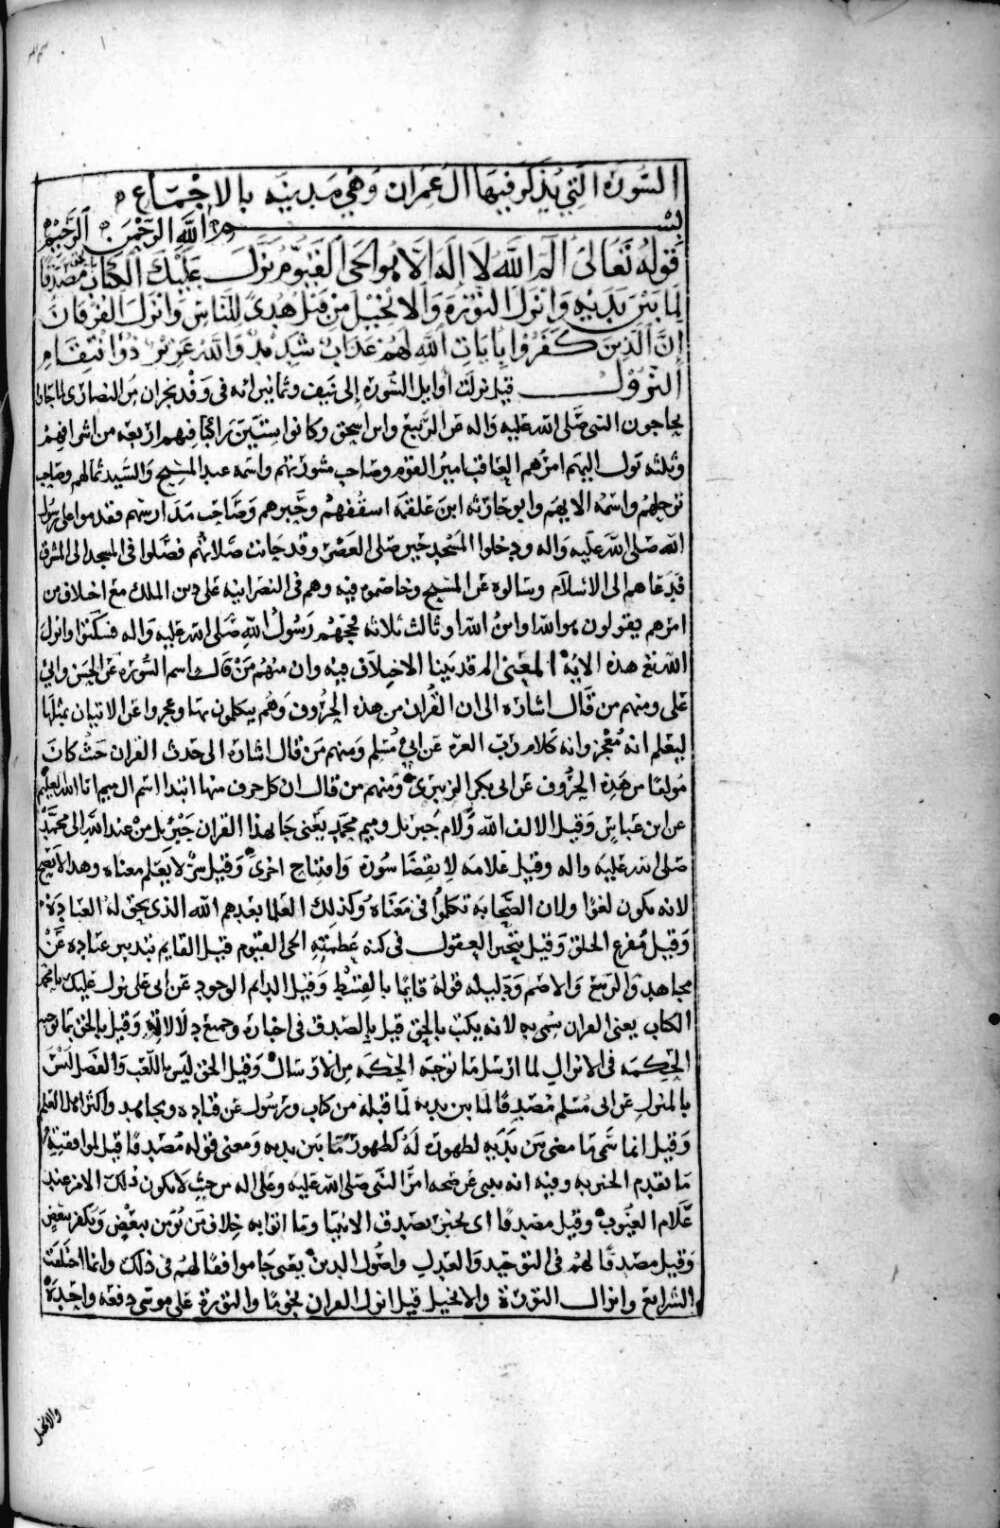 السورة التي يذكر فيها ال عمران وهي مدنيه بالاجماع
بسم الله الرحمن الرحيم
قوله تعالى الم الله لا اله الا هو الحي القيوم نزل عليك الكتاب بالحق مصدقا
لما بين يديه وانزل التورة والانجيل من قبل هدى للناس وانزل الفرقان
ان الذين كفروا بايات الله لهم عذاب شديد والله عزيز ذو انتقام
النزول قيل نزلت اوايل السورة الى نيف وثمانين ايه في وفد نجران من النصارى لما جاوا
يحاجون النبي صلى الله عليه واله عن الربيع وابن اسحق وكانوا ستين راكبا فيهم اربعه من اشرافهم
وثلثه تول اليهم امرهم العاقب امير القوم وصاحب مشورتهم واسمه عبد المسيح والسيد ثمالهم وصاحب
رحلهم واسمه الايهم وابو حارثه ابن علقمة اسقفهم وحبرهم وصاحب مدارسهم فقدموا على رسول
الله صلى الله عليه واله ودخلوا المسجد حين صلى العصر وقد حانت صلاتهم فصلوا في المسجد الى المشرق
فدعاهم الى الاسلام وسالوه عن المسيح وخاصموه فيه وهم في النصرانيه على دين الملك مع اختلاف من
امرهم يقولون هو الله وابن الله او ثالث ثلاثه فحجهم رسول الله صلى الله عليه واله فسكتوا وانزل
الله تع هذه الاية المعنى الم قد بينا الاختلاف فيه وان منهم من قال اسم السورة عن الحسن وابي
علي ومنهم من قال اشارة الى ان القران من هذه الحروف وهم يتكلمون بها وعجزوا عن الاتيان بمثلها
ليعلم انه معجز وانه كلام رب العزة عن ابي مسلم ومنهم من قال اشارة الى حدث القران حيث كان
مولفا من هذه الحروف عن ابي بكر الزبيري ومنهم من قال ان كل حرف منها ابتدا اسم ال ميم انا الله اعلم
عن ابن عباس وقيل الالف الله ولام جبريل وميم محمد يعني جا بهذا القران جبريل من عند الله الى محمد
صلى الله عليه واله وقيل علامه لانقضا سورة وافتتاح اخرى وقيل سر لا يعلم معناه وهذا لا يصح
لانه يكون لغوا ولان الصحابه تكلموا في معناه وكذلك العلما بعدهم الله الذي يحق له العبادة
وقيل مفزع الخلق وقيل يتحير العقول في كنه عظمته الحي القيوم قيل القايم بتدبير عباده عن
مجاهد والربيع والاصم ودليله قوله قايما بالقسط وقيل الدايم الوجود عن ابي علي نزل عليك يا محمد
الكتاب يعني القران سمي به لانه يكتب بالحق قيل بالصدق في اخباره وجميع دلالاته وقيل بالحق بما توجبه
الحكمه في الانزال لما ارسل ما توجبه الحكمه من الارسال وقيل الحق ليس باللعب والفصل ليس
بالهزل عن ابي مسلم مصدقا لما بين يديه لما قبله من كتاب ورسول عن قتاده ومجاهد واكثر اهل العلم
وقيل انما سمى ما مضى بين يديه لظهوره له كظهور ما بين يديه ومعنى قوله مصدقا قيل لموافقته
ما تقدم الخبر به وفيه انه يبنى عن صحه امر النبي صلى الله عليه وعلى اله من حيث لا يكون ذلك الا من عند
علام الغيوب وقيل مصدقا اي يخبر بصدق الانبيا وما اتوا به خلاف من نؤمن ببعض ونكفر ببعض
وقيل مصدقا لهم في التوحيد والعدل واصول الدين يعني جا موافقا لهم في ذلك وانما اختلفت
الشرايع وانزال التورة والانجيل قيل انزل القران نجوما والتورة على موسى دفعة واحدة
والانجيل